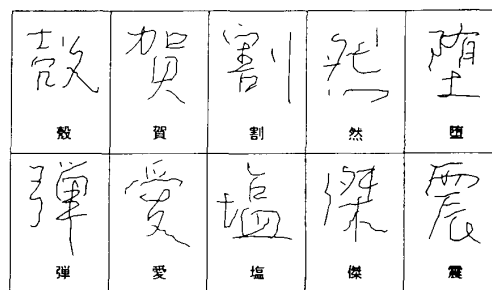 殻 賀 割 然 堕
殻 賀 割 然 堕
弾 愛 塩 傑 震
弾 愛 塩 傑 震